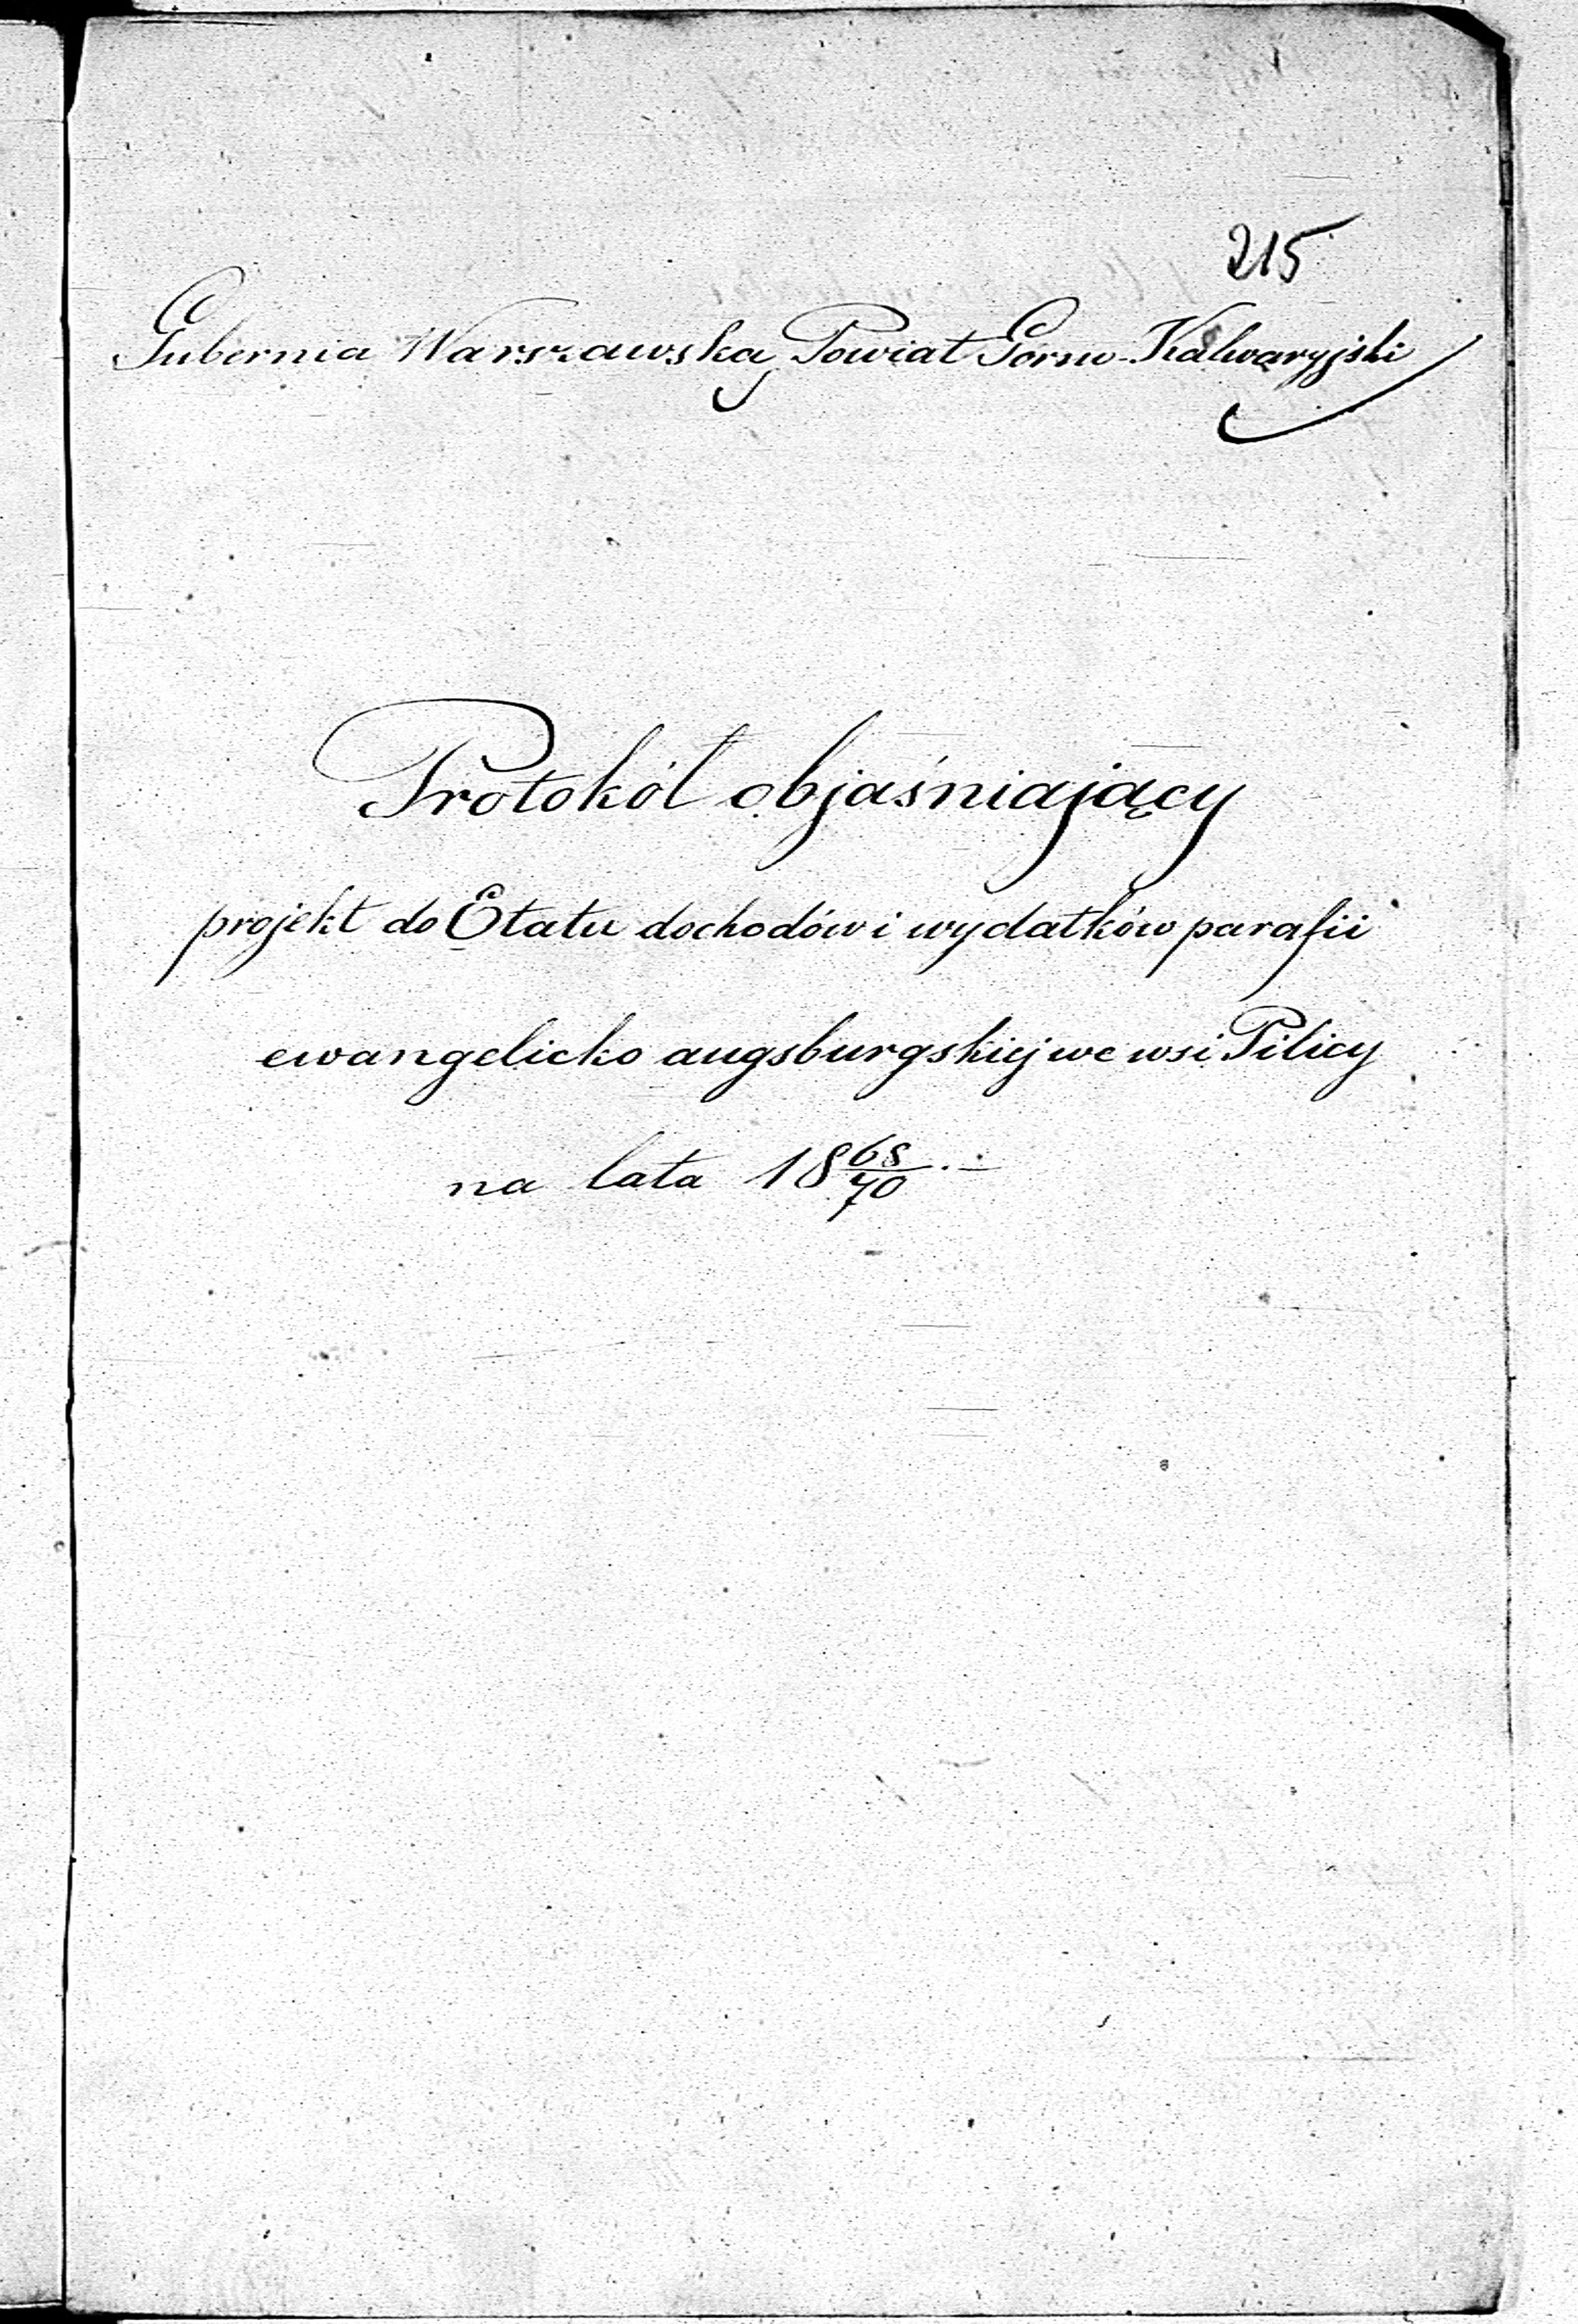 215
Gubernia Warszawska, Powiat Górno-Kalwaryjski
Protokół objaśniający
projekt do Etatu dochodów i wydatków parafii
ewangelicko augsburgskiej we wsi Pilicy
na lata 18 68/70